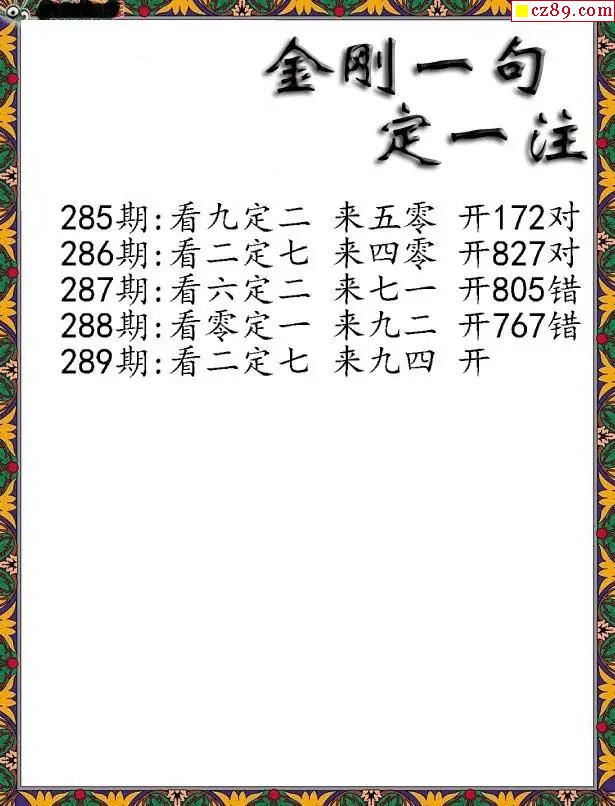 cz89.com
金刚一句
定一注
285期:看九定二 来五零 开172对
286期:看二定七 来四零 开827对
287期:看六定二 来七一 开805错
288期:看零定一 来九二 开767错
289期:看二定七 来九四 开